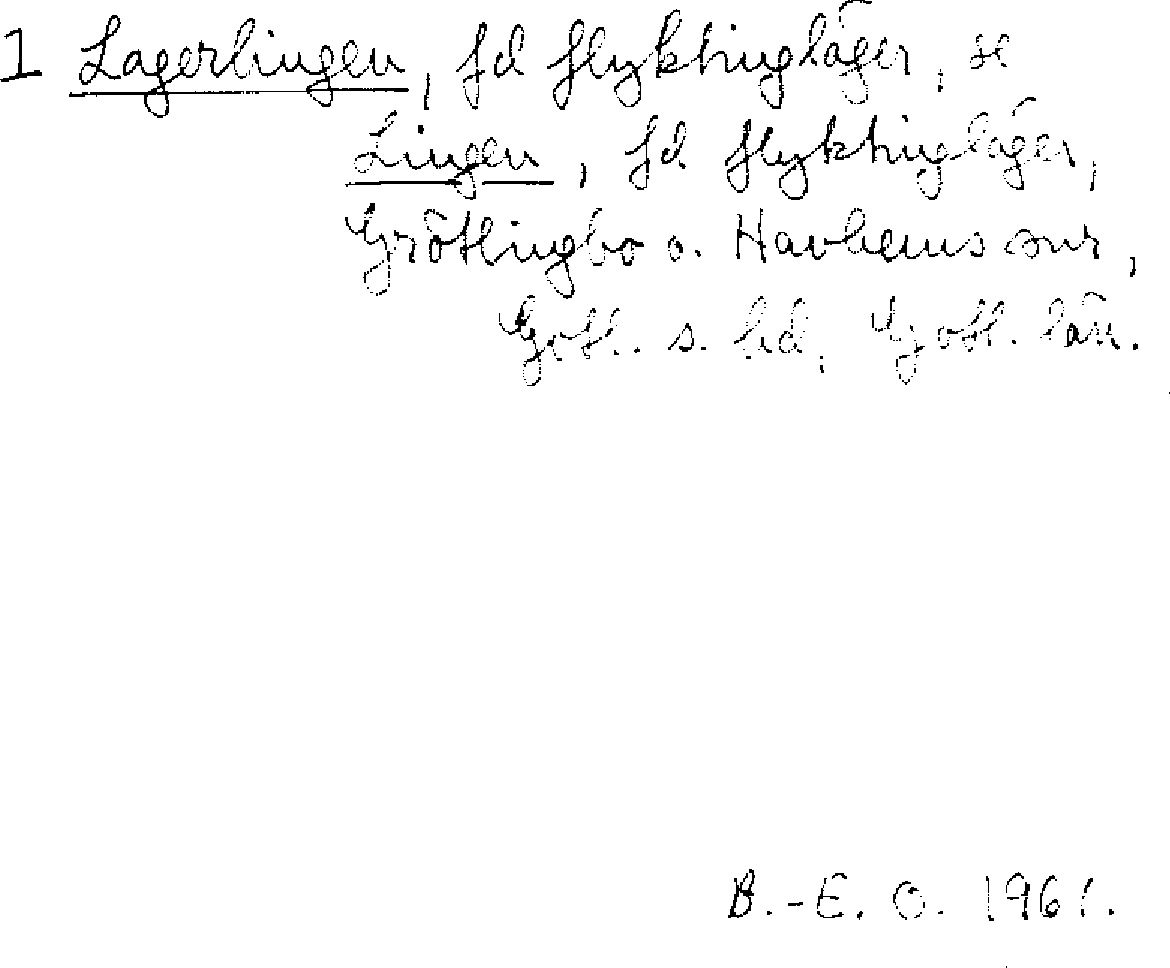 1 Lagerlingen, fd flyktingläger, se
Lingen, fd. flyktingläger,
Grötlingbo o. Havdhems snr,
Gotl. s. hd, Gotl. län.
B.-E. O. 1961.